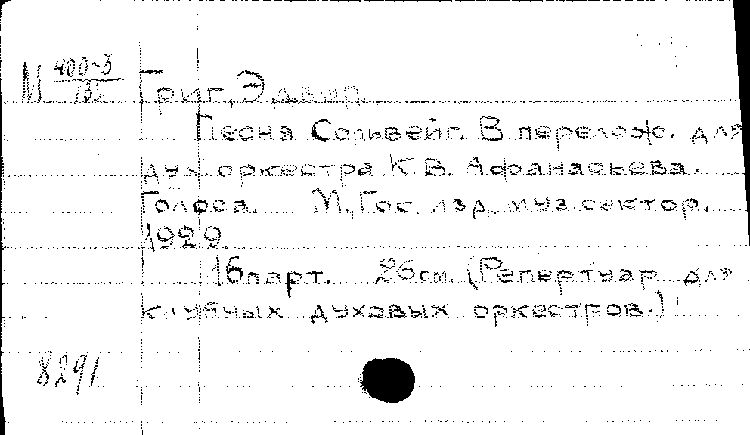 М 400-3
Григ, Эдвард.
Песня Сольвейг. В перелож. для
дух. оркестра К. В. Афанасьева.
Голоса. М., Гос. изд. муз. сектор.
1929.
16 парт. 26 см. (Репертуар для
клубных духовых оркестров.)
8291